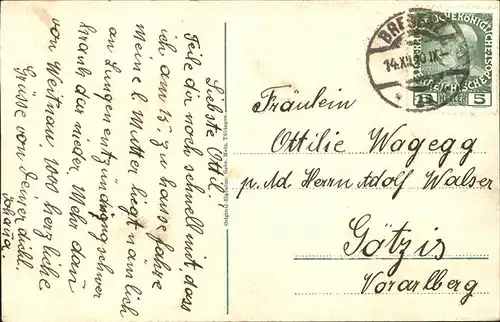 Liebste Ottil!
Teile dir noch schnell mit dass
ich am 15. zu hause fahre
Meine l. Mutter liegt nämlich
an Lungenentzündung schwer
krank darnieder. Mehr dan
von Weitnau. herzliche
Grüsse von deiner dichl.
Johana.
BRE
14.XII.
KÖNIGL
5 HELLER 5
Fräulein
Ottilie Wagegg
p. Ad. Herrn Adolf Walser
Götzis
Vorarlberg